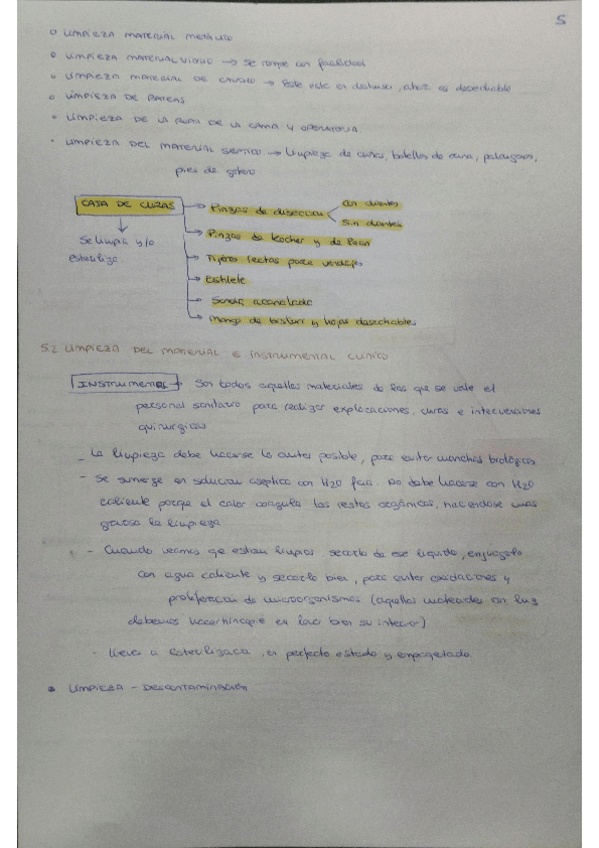 5
LIMPIEZA MATERIAL METALICO
LIMPIEZA MATERIAL VIDRIO → Se rompe con facilidad
LIMPIEZA MATERIAL DE CAUCHO → Este este en desuso, ahora es desechable
LIMPIEZA DE BATEAS
LIMPIEZA DE LA ROPA DE LA CAMA Y OPERATORIA.
LIMPIEZA DEL MATERIAL SEPTICO → Limpieza de cuñas, botellas de orina, palanganas,
pies de gotero
CAJA DE CURAS → Pinzas de diseccion < Con dientes
Sin dientes
Se limpia y/o
esteriliza
Pinzas de kocher y de Pean
Tijeras rectas para vendajes
Estilete
Sonda acanalada
Mango de bisturi y hojas desechables
5.2 LIMPIEZA DEL MATERIAL E INSTRUMENTAL CLINICO
INSTRUMENTAL → Son todos aquellos materiales de los que se vale el
personal sanitario para realizar exploraciones, curas e intervenciones
quirurgicas
- La limpieza debe hacerse lo antes posible, para evitar manchas biológicas
- Se sumerge en solucion aseptica con H2O fria. No debe hacerse con H2O
caliente porque el calor coagula los restos orgánicos, haciendose mas
la limpieza
- Cuando veamos que estan limpios, sacarlo de ese liquido, enjuagarlo
con agua caliente y secarlo bien, para evitar oxidaciones y
proliferacion de microorganismos (aquellos materiales con luz
debemos hacer hincapie en lavar bien su interior)
- Lleva a Esterilizaca, en perfecto estado y empaquetado.
LIMPIEZA - DESCONTAMINACIÓN